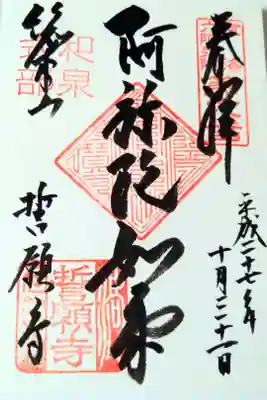 奉拝
平成二十七年
十月二十一日
阿弥陀如来
総本山
和泉
式部
誓願寺
誓願寺